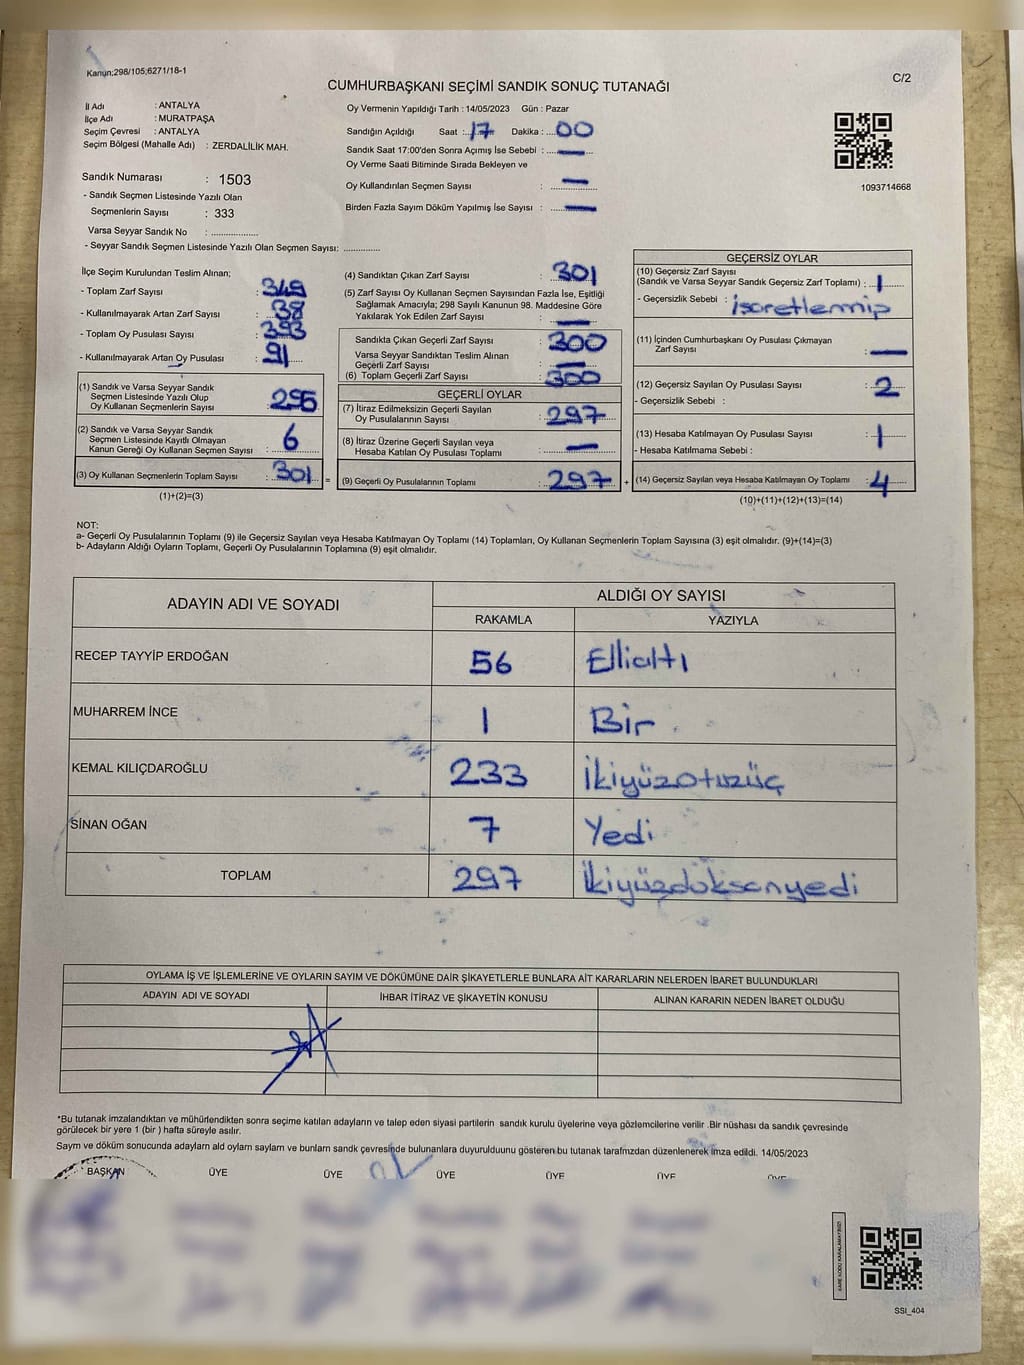 Kanun;298/105;6271/18-1
C/2
CUMHURBAŞKANI SEÇİMİ SANDIK SONUÇ TUTANAĞI
İl Adı : ANTALYA
İlçe Adı : MURATPAŞA
Seçim Çevresi : ANTALYA
Seçim Bölgesi (Mahalle Adı) : ZERDALİLİK MAH.
Sandık Numarası : 1503
- Sandık Seçmen Listesinde Yazılı Olan
Seçmenlerin Sayısı : 333
Varsa Seyyar Sandık No : ..................
- Seyyar Sandık Seçmen Listesinde Yazılı Olan Seçmen Sayısı: ..............
Oy Vermenin Yapıldığı Tarih : 14/05/2023 Gün : Pazar
Sandığın Açıldığı Saat : 17 Dakika : 00
Sandık Saat 17:00'den Sonra Açımış İse Sebebi : —
Oy Verme Saati Bitiminde Sırada Bekleyen ve
Oy Kullandırılan Seçmen Sayısı : —
Birden Fazla Sayım Döküm Yapılmış İse Sayısı : —
1093714668
İlçe Seçim Kurulundan Teslim Alınan;
- Toplam Zarf Sayısı : 349
- Kullanılmayarak Artan Zarf Sayısı : 38
- Toplam Oy Pusulası Sayısı : 393
- Kullanılmayarak Artan Oy Pusulası : 91
(1) Sandık ve Varsa Seyyar Sandık
Seçmen Listesinde Yazılı Olup
Oy Kullanan Seçmenlerin Sayısı : 295
(2) Sandık ve Varsa Seyyar Sandık
Seçmen Listesinde Kayıtlı Olmayan
Kanun Gereği Oy Kullanan Seçmen Sayısı : 6
(3) Oy Kullanan Seçmenlerin Toplam Sayısı : 301
(1)+(2)=(3)
(4) Sandıktan Çıkan Zarf Sayısı : 301
(5) Zarf Sayısı Oy Kullanan Seçmen Sayısından Fazla İse, Eşitliği
Sağlamak Amacıyla; 298 Sayılı Kanunun 98. Maddesine Göre
Yakılarak Yok Edilen Zarf Sayısı : —
Sandıkta Çıkan Geçerli Zarf Sayısı : 300
Varsa Seyyar Sandıktan Teslim Alınan
Geçerli Zarf Sayısı : —
(6) Toplam Geçerli Zarf Sayısı : 300
GEÇERLİ OYLAR
(7) İtiraz Edilmeksizin Geçerli Sayılan
Oy Pusulalarının Sayısı : 297
(8) İtiraz Üzerine Geçerli Sayılan veya
Hesaba Katılan Oy Pusulası Toplamı : —
= (9) Geçerli Oy Pusulalarının Toplamı : 297 +
GEÇERSİZ OYLAR
(10) Geçersiz Zarf Sayısı
(Sandık ve Varsa Seyyar Sandık Geçersiz Zarf Toplamı) : 1
- Geçersizlik Sebebi : işaretlenmiş
(11) İçinden Cumhurbaşkanı Oy Pusulası Çıkmayan
Zarf Sayısı : —
(12) Geçersiz Sayılan Oy Pusulası Sayısı : 2
- Geçersizlik Sebebi :
(13) Hesaba Katılmayan Oy Pusulası Sayısı : 1
- Hesaba Katılmama Sebebi :
(14) Geçersiz Sayılan veya Hesaba Katılmayan Oy Toplamı : 4
(10)+(11)+(12)+(13)=(14)
NOT:
a- Geçerli Oy Pusulalarının Toplamı (9) ile Geçersiz Sayılan veya Hesaba Katılmayan Oy Toplamı (14) Toplamları, Oy Kullanan Seçmenlerin Toplam Sayısına (3) eşit olmalıdır. (9)+(14)=(3)
b- Adayların Aldığı Oyların Toplamı, Geçerli Oy Pusulalarının Toplamına (9) eşit olmalıdır.
ADAYIN ADI VE SOYADI ALDIĞI OY SAYISI
RAKAMLA YAZIYLA
RECEP TAYYİP ERDOĞAN 56 Ellialtı
MUHARREM İNCE 1 Bir
KEMAL KILIÇDAROĞLU 233 İkiyüzotuzüç
SİNAN OĞAN 7 Yedi
TOPLAM 297 İkiyüzdoksanyedi
OYLAMA İŞ VE İŞLEMLERİNE VE OYLARIN SAYIM VE DÖKÜMÜNE DAİR ŞİKAYETLERLE BUNLARA AİT KARARLARIN NELERDEN İBARET BULUNDUKLARI
ADAYIN ADI VE SOYADI İHBAR İTİRAZ VE ŞİKAYETİN KONUSU ALINAN KARARIN NEDEN İBARET OLDUĞU
*Bu tutanak imzalandıktan ve mühürlendikten sonra seçime katılan adayların ve talep eden siyasi partilerin sandık kurulu üyelerine veya gözlemcilerine verilir .Bir nüshası da sandık çevresinde
görülecek bir yere 1 (bir ) hafta süreyle asılır.
Saym ve döküm sonucunda adayların ald oylarn saylam ve bunlarn sandk çevresinde bulunanlara duyurulduunu gösteren bu tutanak tarafmzdan düzenlenerek imza edildi. 14/05/2023
BAŞKAN ÜYE ÜYE ÜYE ÜYE ÜYE ÜYE
SSI_404